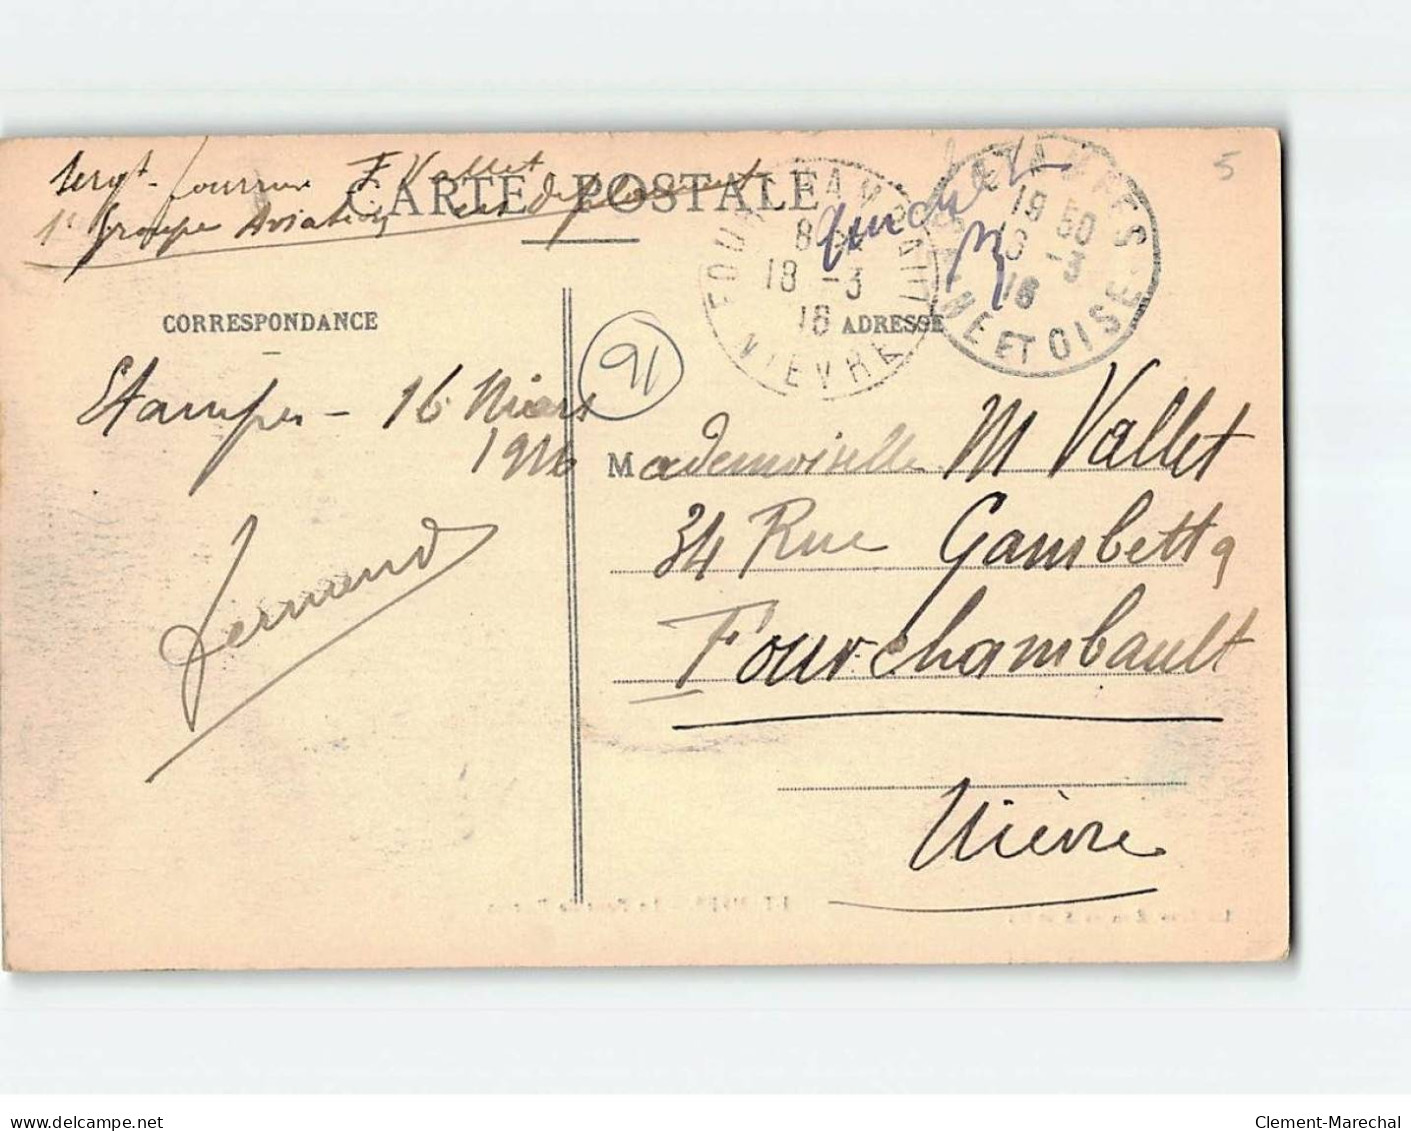 Sergt fourrier F Vallet
1r Groupe Aviation en deplacement
CARTE POSTALE
5
FOURCHAMBAULT
18 -3
16
NIEVRE
ETAMPES
19 50
-3
16
SEINE ET OISE
CORRESPONDANCE
ADRESSE
91
Etampes - 16 Mars
1916
Mademoiselle M Vallet
34 Rue Gambetta
Fourchambault
Nièvre
Fernand
delcampe.net
Clement-Marechal